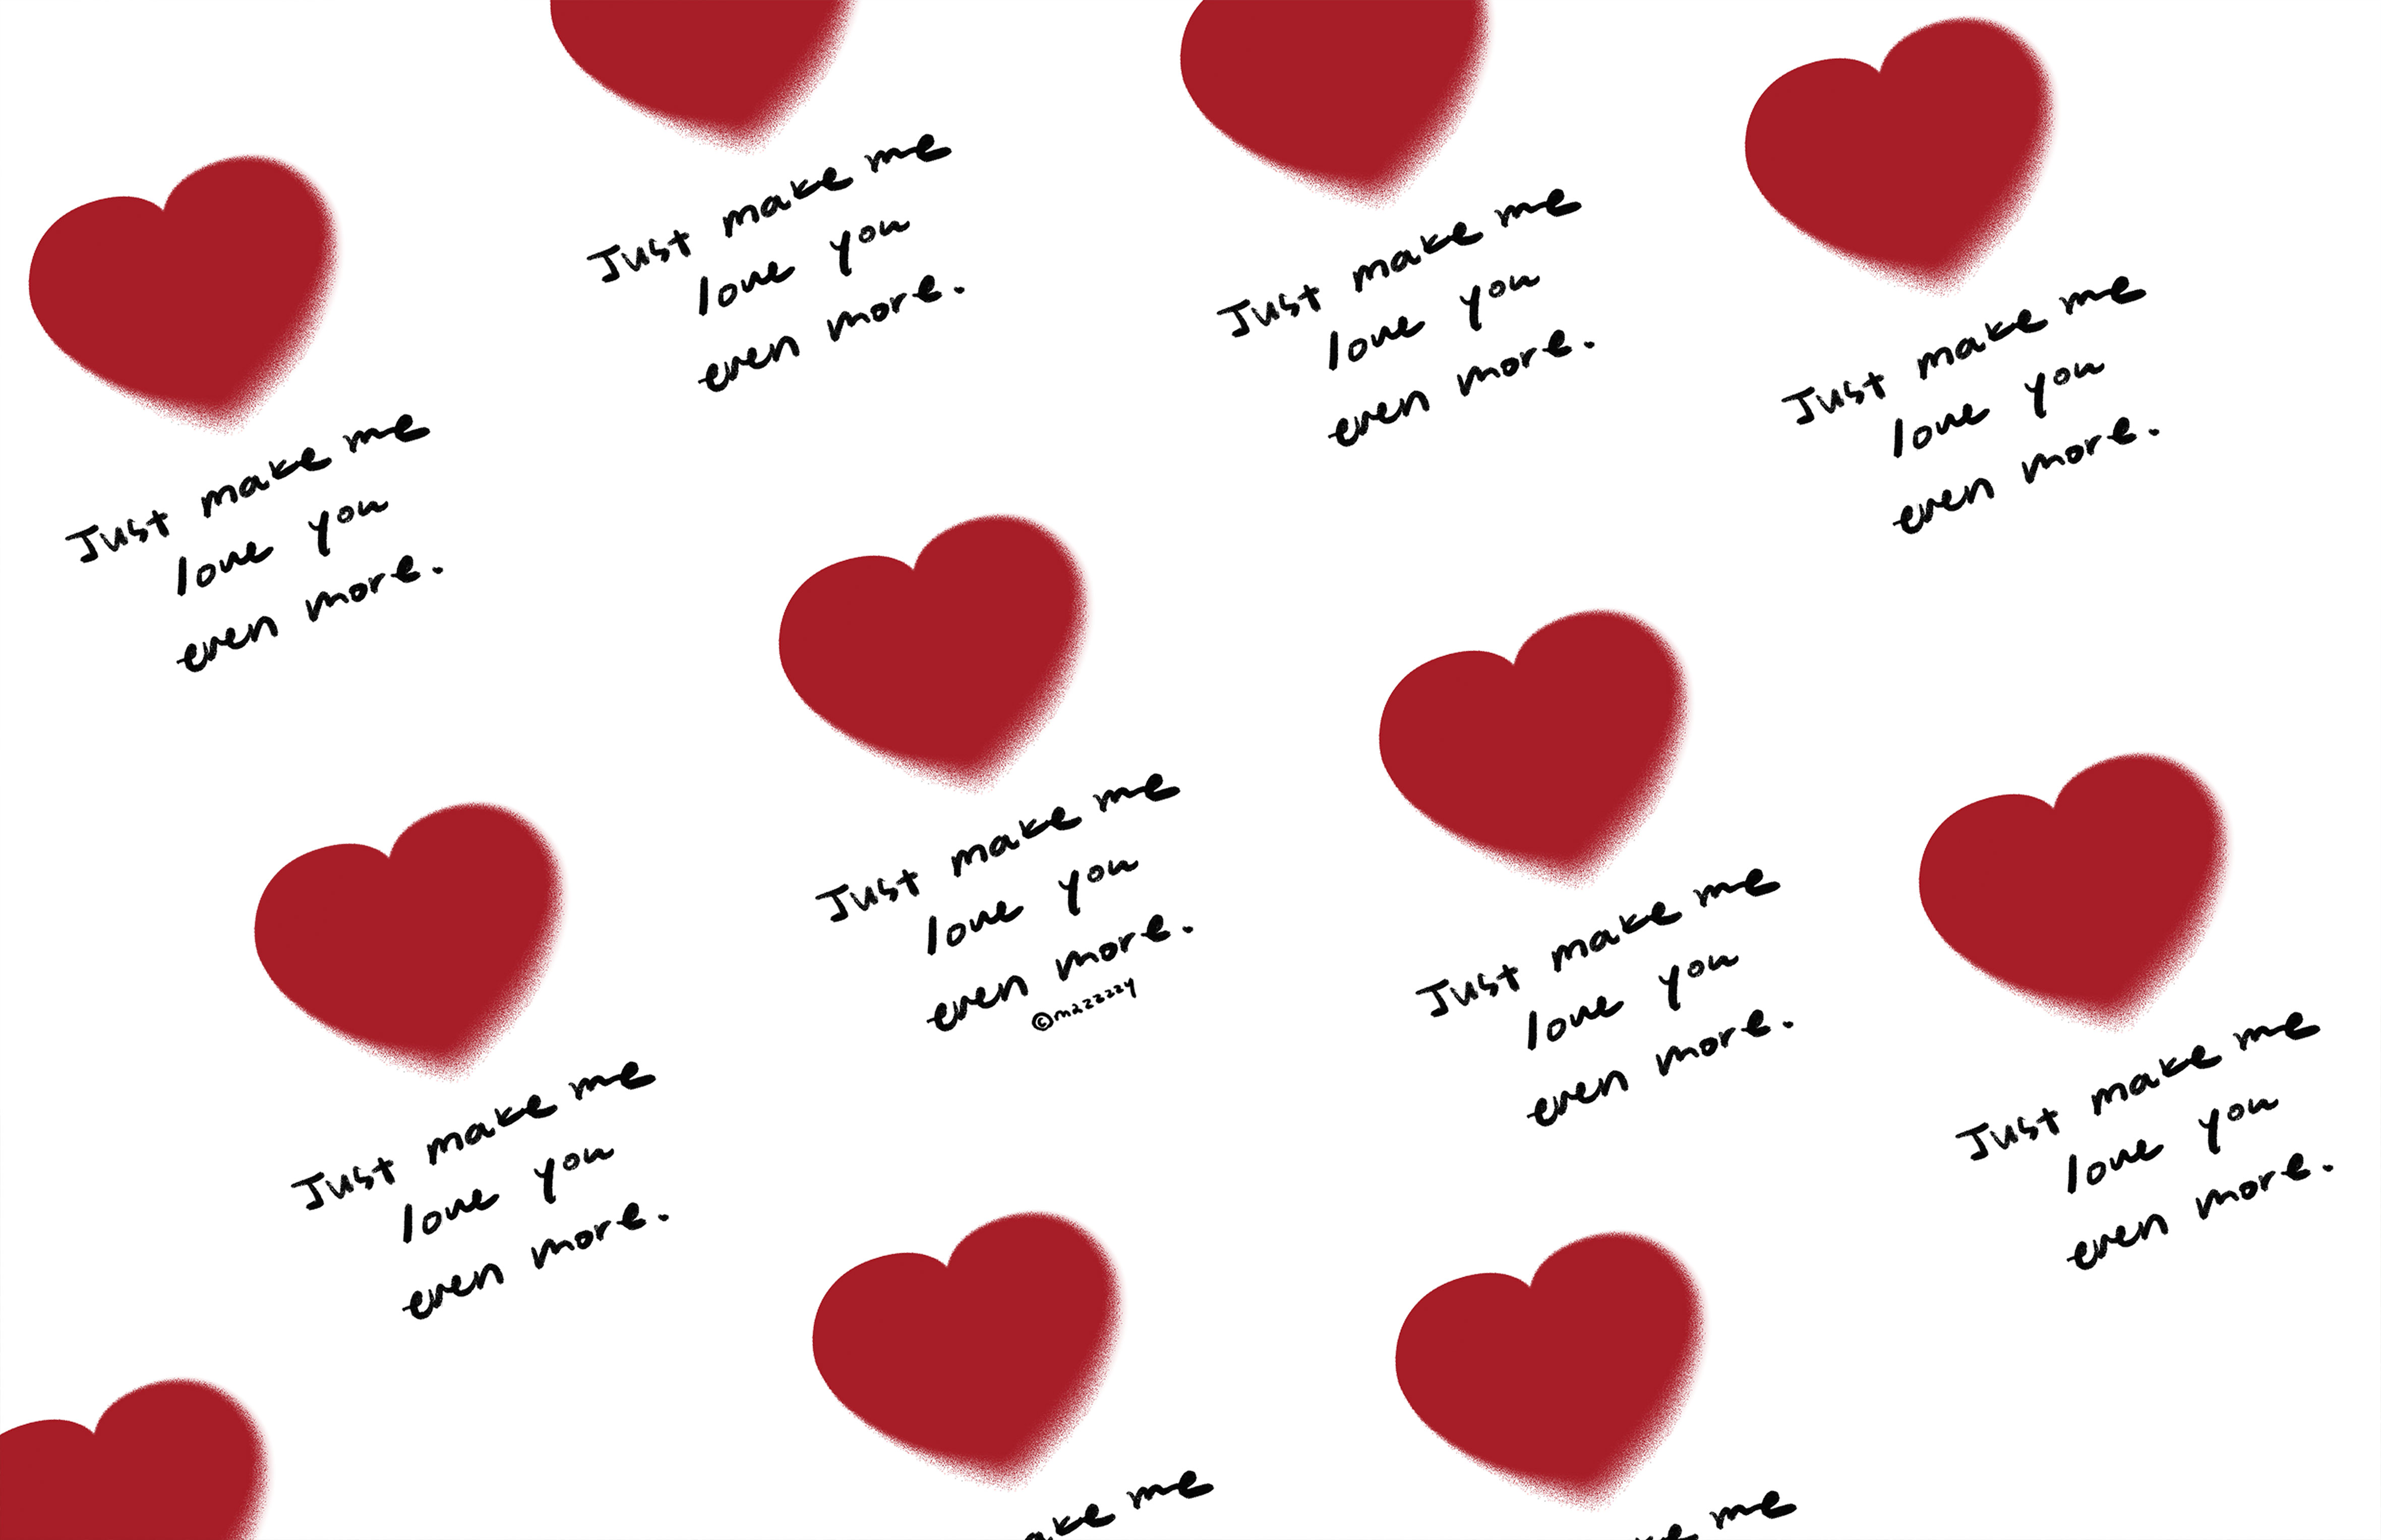 Just make me
love you
even more.
Just make me
love you
even more.
Just make me
love you
even more.
Just make me
love you
even more.
Just make me
love you
even more.
©mazzzzy
Just make me
love you
even more.
Just make me
love you
even more.
Just make me
love you
even more.
ake me
ke me